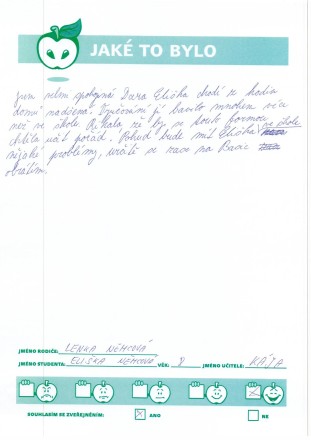 JAKÉ TO BYLO
Jsem velmi spokojená. Dcera Eliška chodí z hodin
domů nadšená. Doučování jí bavilo mnohem více
než ve škole. Říkala že by se touto formou ve škole
chtěla učit pořád. Pokud bude mít Eliška
nějaké problémy, určitě se zase na Basic
obrátím.
JMÉNO RODIČE: LENKA NĚMCOVÁ
JMÉNO STUDENTA: ELIŠKA NĚMCOVÁ VĚK: 8 JMÉNO UČITELE: KÁJA
SOUHLASÍM SE ZVEŘEJNĚNÍM: ANO NE